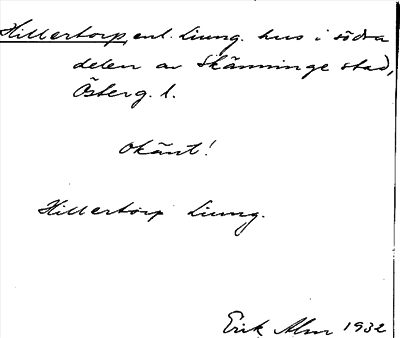 Hillertorp, enl. Ljung. hus i södra
delen av Skänninge stad,
Österg. l.
Okänt!
Hillertorp Ljung.
Erik Alm 1932